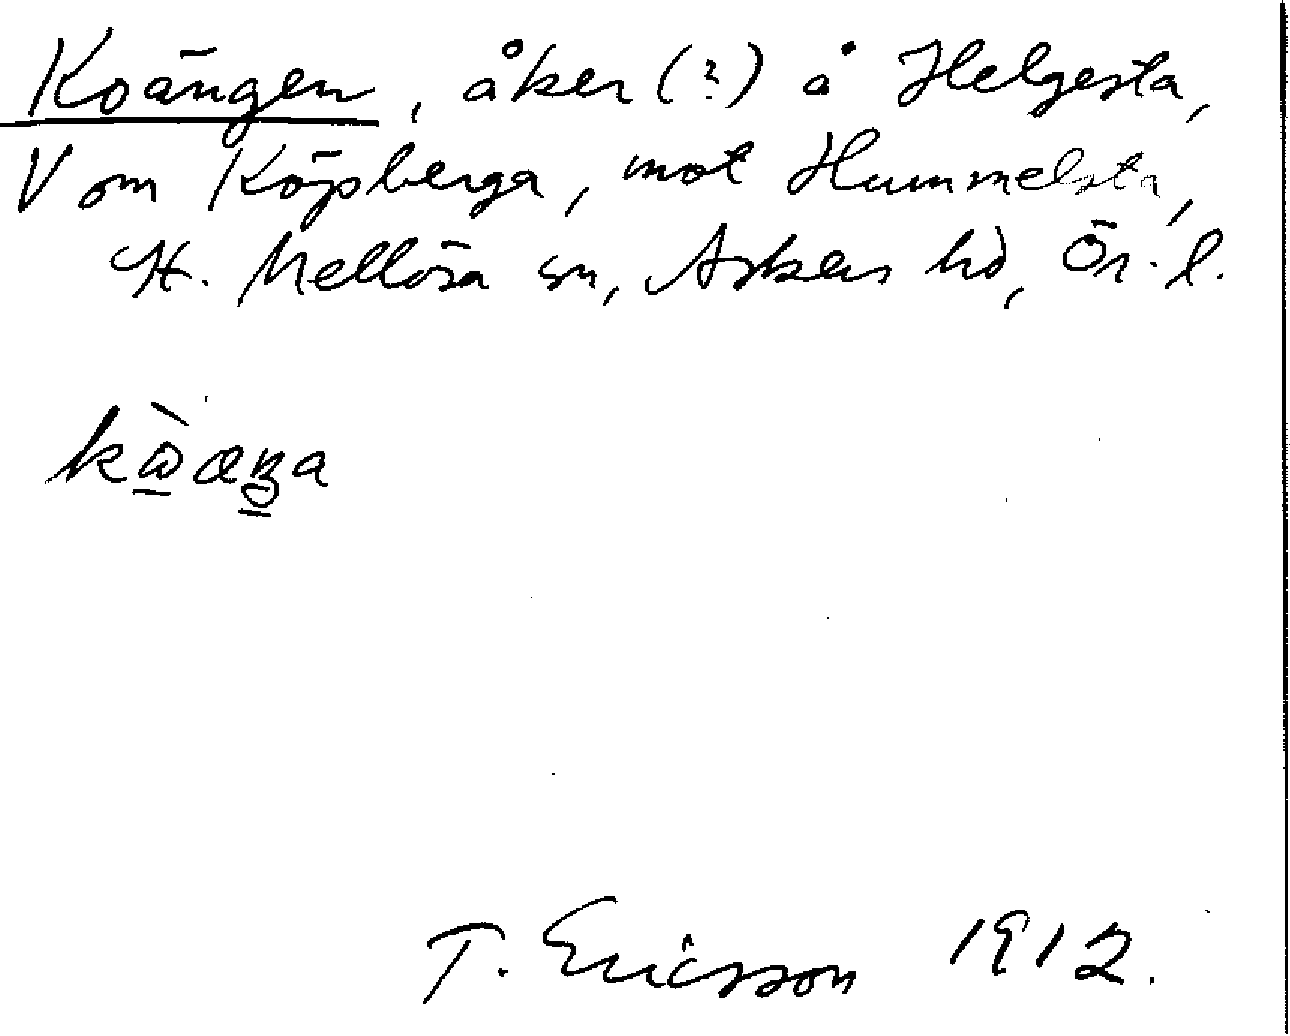 Koängen, åker (?) å Helgesta,
V om Köpberga, mot Hummelsta,
St. Mellösa sn, Askers hd, Ör. l.
T. Ericsson 1912.